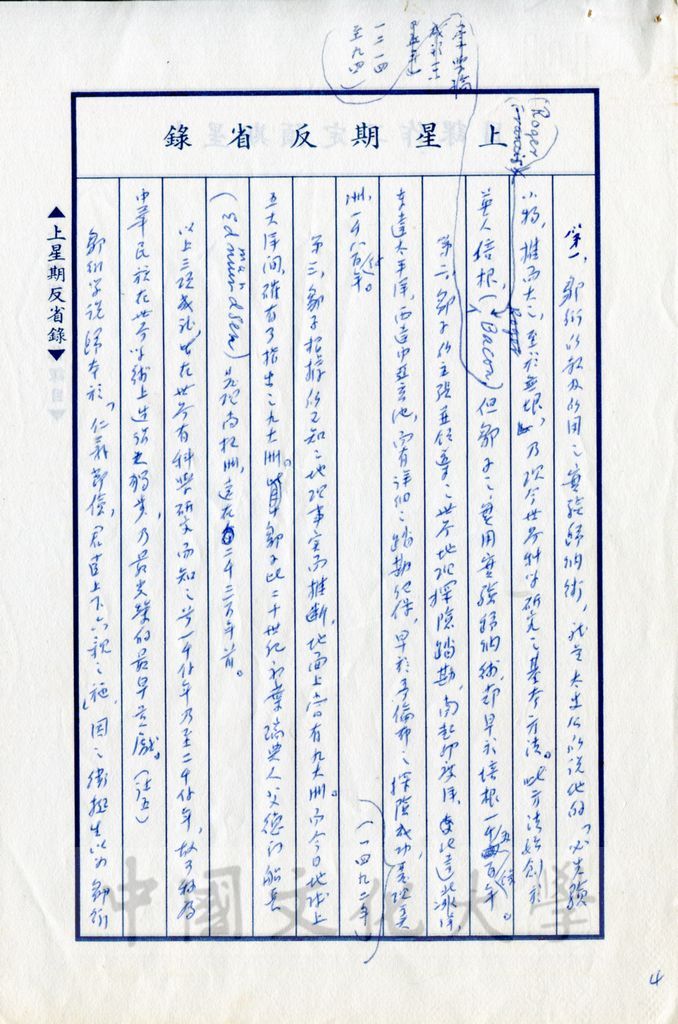 上星期反省錄
(Roger
Francis
第一，鄒衍所教及所用之實驗歸納術，就是太史公所說他的「必先驗
小物，推而大之，至於無垠」，乃現今世界科學研究之基本方法。此方法始創於
英人培根，(Bacon)但鄒子之運用實驗歸納術，却早於培根一千五百餘年。
Roger
第二，鄒子的主張並領導之世界地理探險踏勘，南起印度洋，北達北冰洋，
東達太平洋，西達中亞玄池，而有詳細之踏勘紀件，早於哥倫布之探險成功發現美
洲，一千八百餘年。
(一四九二年)
第三，鄒子根據所已知之地理事實而推斷，地面上當有九大洲，而今日地球上
五大洋間，確有了指出之九大洲。鄒子比二十世紀初葉瑞典人父德的船長
(Edmundsen)發現南極洲，遠在二千三百年前。
mun
以上三項成就，皆在世界有科學研究而知之前一千餘年乃至二千餘年，故可稱為
中華民族在世界學術上造詣之獨步，乃最光榮的最早貢獻。(註五)
鄒衍學說歸本於「仁義節儉，君臣上下六親之施」，因之衛挺生以為鄒衍
▲上星期反省錄▼
中國文化大學
4